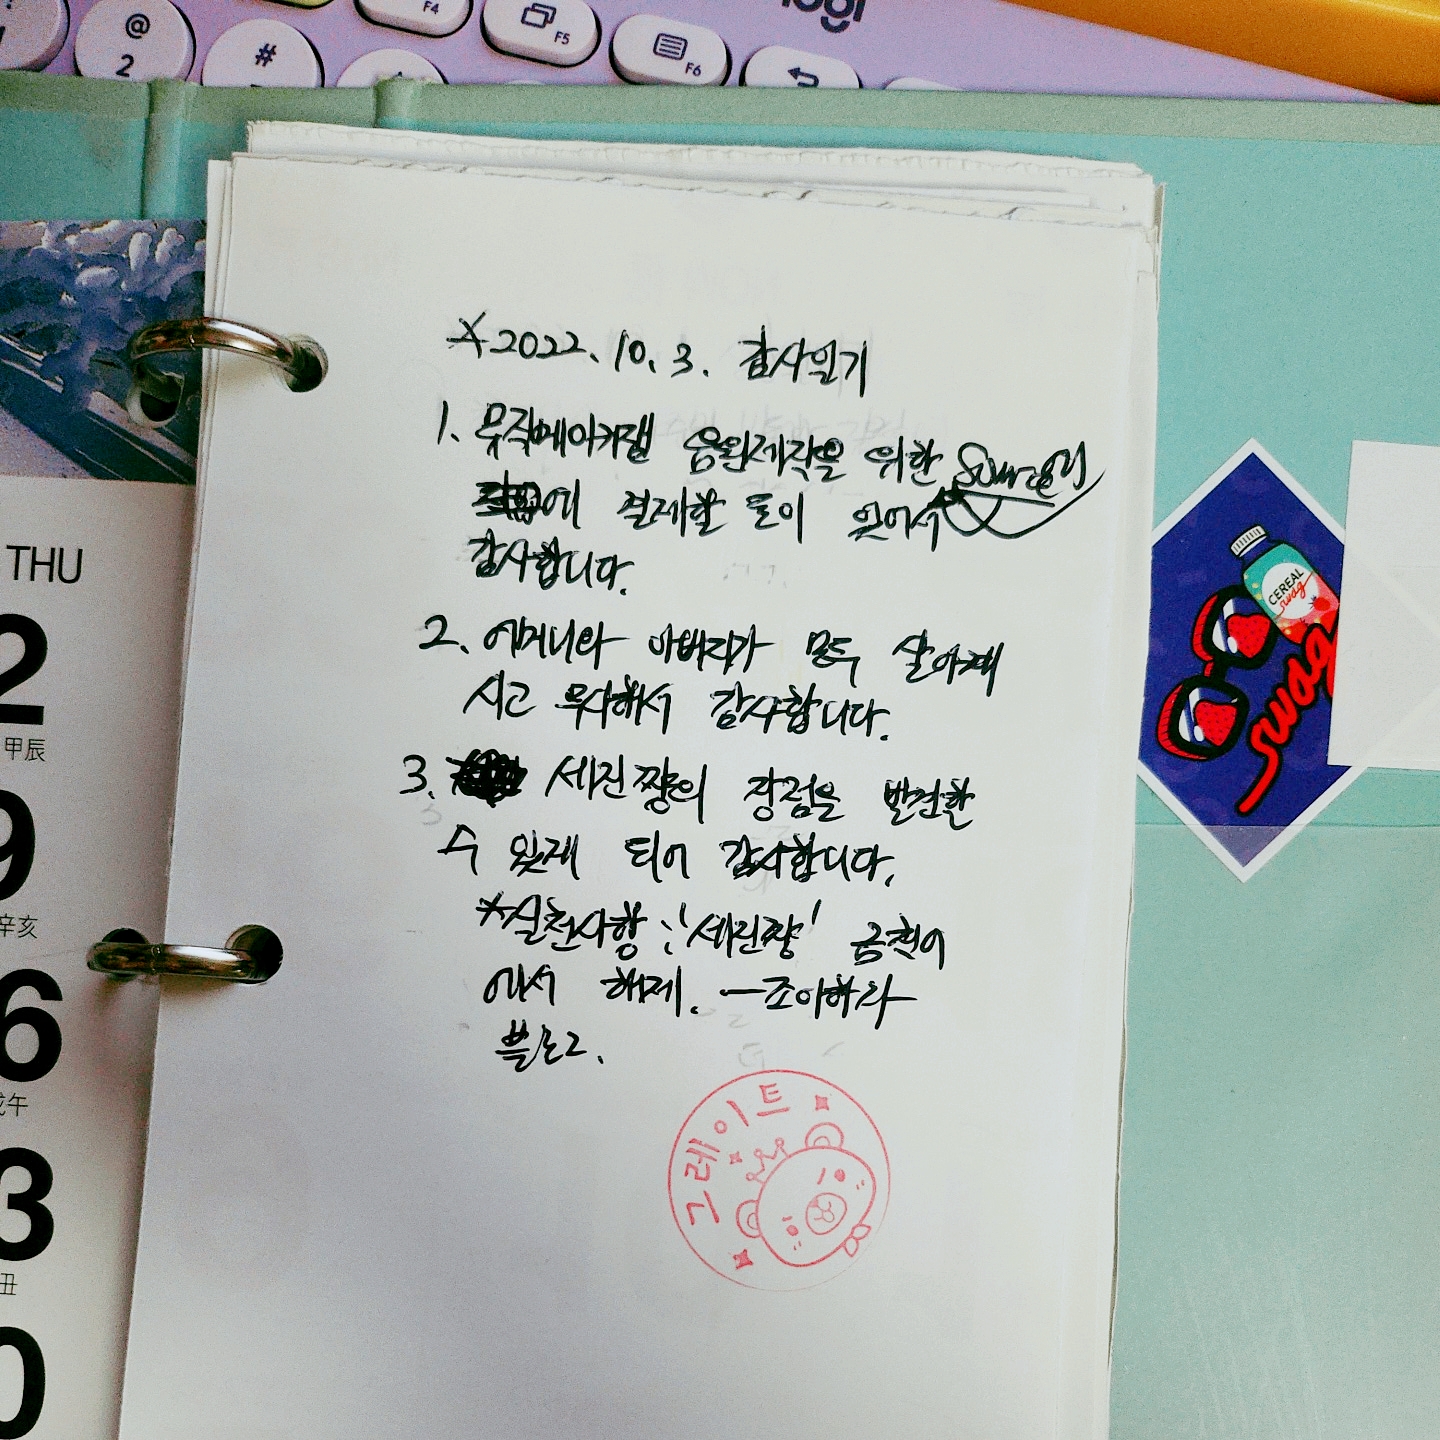 logi
@
2
#
F4
F5
F6
THU
2
甲辰
9
辛亥
6
戊午
3
丑
0
☆2022. 10. 3. 감사일기
1. 뮤직메이커잼 음원제작을 위한
에 결제할 돈이 있어서
감사합니다.
2. 어머니와 아버지가 모두 살아계
시고 무사해서 감사합니다.
3. 세진쨩의 장점을 발견할
수 있게 되어 감사합니다.
*실천사항 : '세진쨩' 금칙어
에서 해제. - 조아하라
블로그.
그레이트
CEREAL
swag
swag